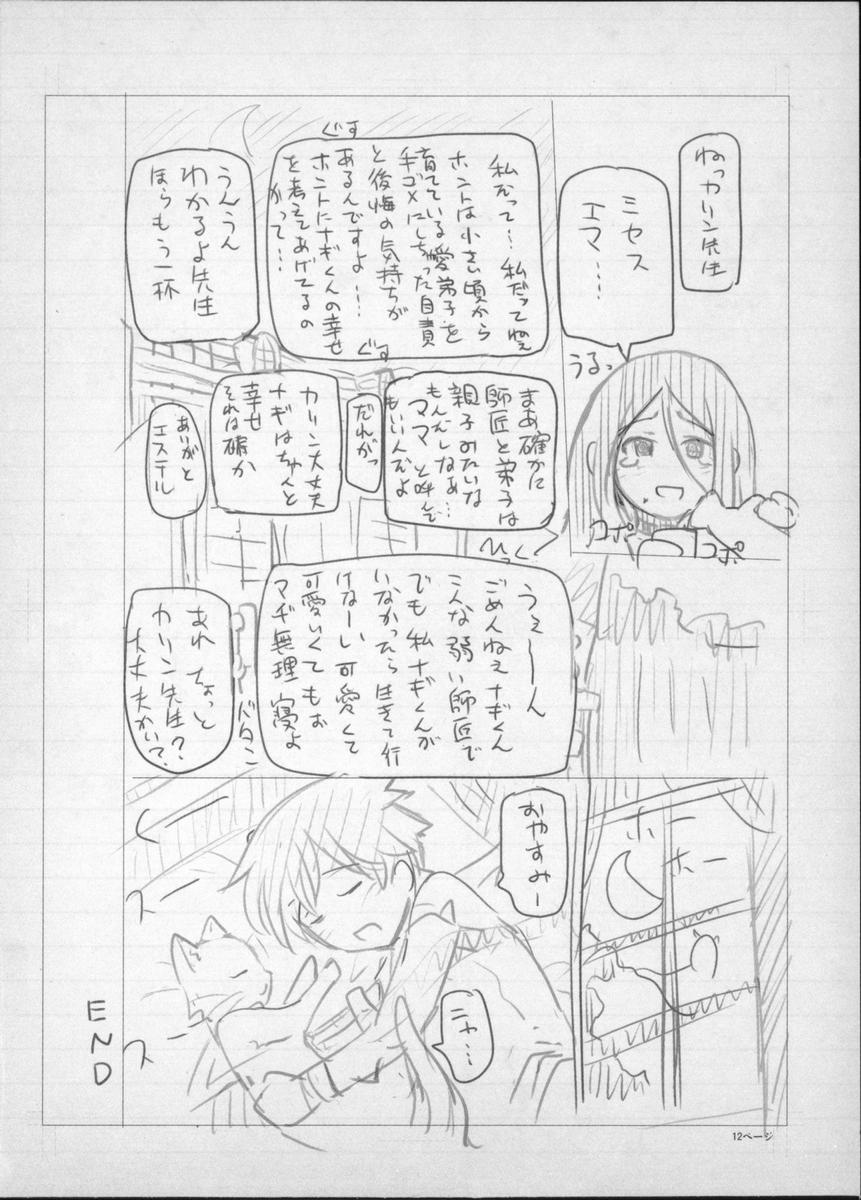 ねっカリン先生
ミセス
エマ…
うるっ
コポ
コポ
ぐす
私だって…私だってねぇ
ホントは小さい頃から
育てている愛弟子を
手ゴメにしちゃった自責
と後悔の気持ちが
あるんですよ…
ホントにナギくんの幸せ
を考えてあげてるの
かって…
ぐす
うんうん
わかるよ先生
ほらもう一杯
まあ確かに
師匠と弟子は
親子みたいな
もんだしなぁ…
ママと呼んで
もいいんだよ
だれがっ
カリン大丈夫
ナギはちゃんと
幸せ
それは確か
ありがと
エステル
ひっく
うぇーん
ごめんねぇナギくん
こんな弱い師匠で
でも私ナギくんが
いなかったら生きて行
けなーい可愛くて
可愛いくてもお
マヂ無理 寝よ
バタン
あれ ちょっと
カリン先生?
大丈夫かい?
ホー
ホー
おやすみー
ニャ…
スー
ス
END
12ページ